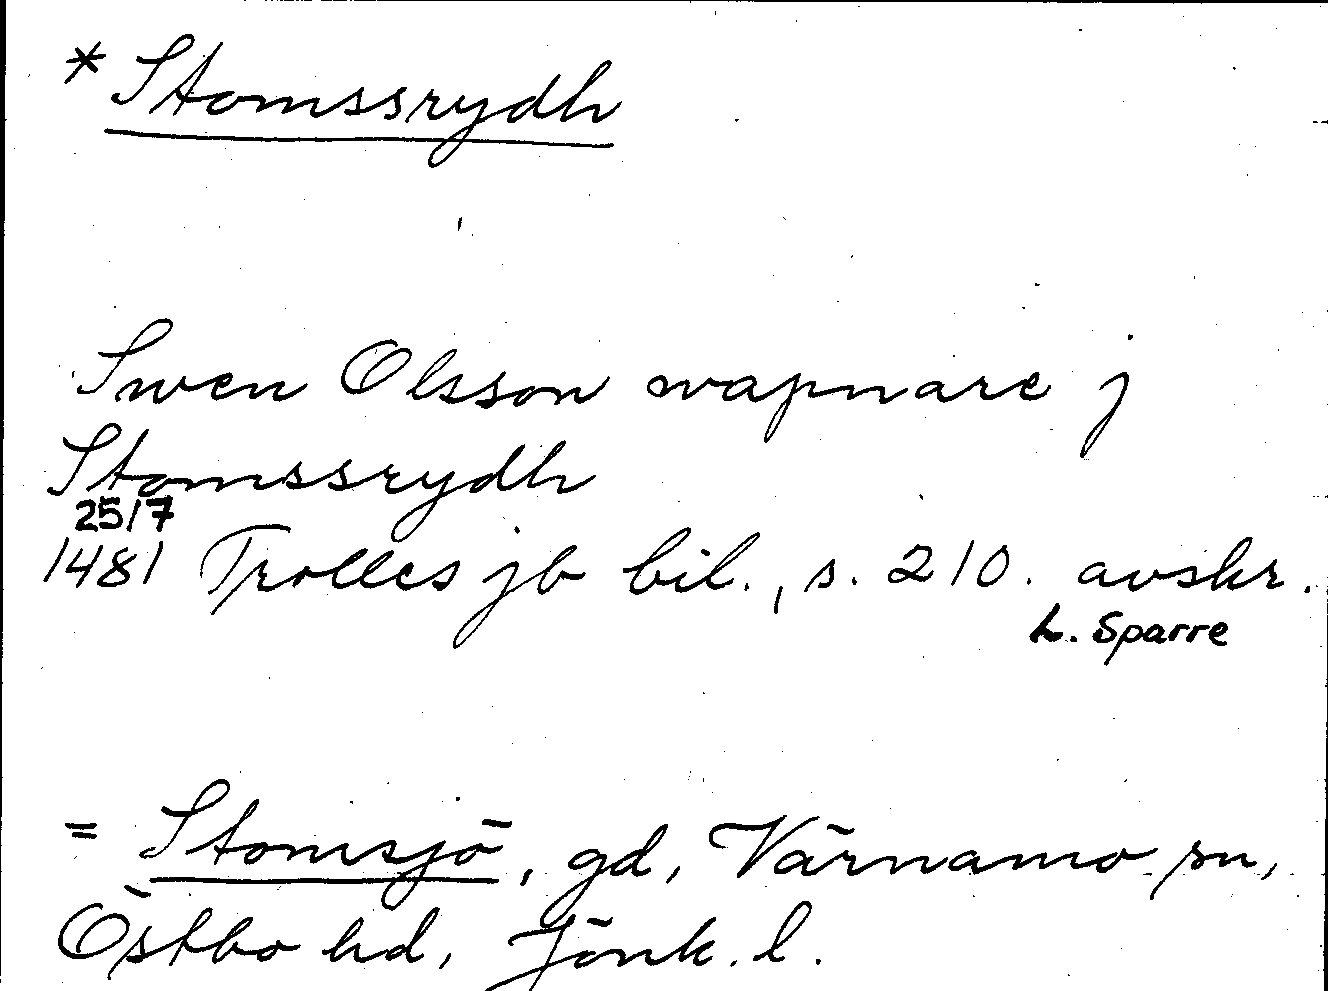 * Stomssrydh
Swen Olsson wapnare j
Stomssrydh
25/7
1481 Trolles jb bil., s. 210. avskr.
L. Sparre
= Stomsjö, gd, Värnamo sn,
Östbo hd, Jönk. l.